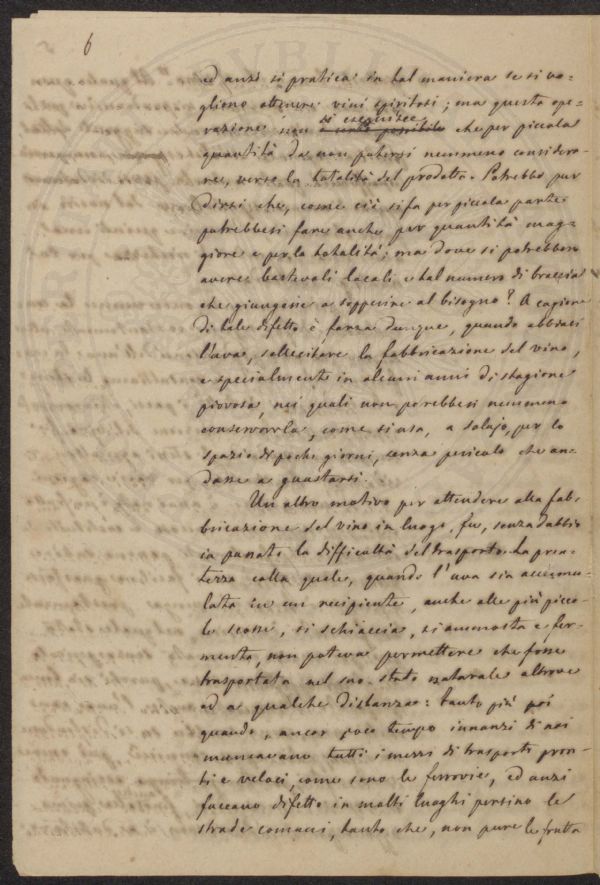 6
ed anzi si pratica in tal maniera se si vo=
gliono ottenere vini spiritosi; ma questa ope=
si eseguisce
razione non è certo possibile che per piccola
quantità da non potersi nemmeno considera=
re, verso la totalità del prodotto. Potrebbe pur
dirsi che, come ciò si fa per piccola parte
potrebbesi fare anche per quantità mag=
giore e per la totalità; ma dove si potrebbero
avere bastevoli locali e tal numero di braccia
che giungesse a sopperire al bisogno? A cagione
di tale difetto è forza dunque, quando abbiasi
l'uva, sollecitare la fabbricazione del vino,
e specialmente in alcuni anni di stagione
piovosa, nei quali non potrebbesi nemmeno
conservarla, come si usa, a solajo, per lo
spazio di pochi giorni, senza pericolo che an=
dasse a guastarsi.
Un altro motivo per attendere alla fab=
bricazione del vino in luogo, fu, senza dubbio
in passato la difficoltà del trasporto. La pron=
tezza colla quale, quando l'uva sia accumu=
lata in un recipiente, anche alle più picco=
le scosse, si schiaccia, si ammosta e fer=
menta, non poteva permettere che fosse
trasportata nel suo stato naturale altrove
ed a qualche distanza: tanto più poi
quando, ancor poco tempo innanzi di noi
mancavano tutti i mezzi di trasporti pron=
ti e veloci, come sono le ferrovie, ed anzi
faceano difetto in molti luoghi persino le
strade comuni, tanto che, non pure le frutta